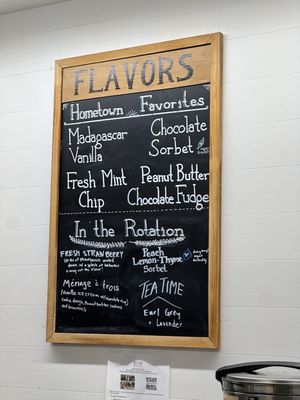 FLAVORS
Hometown Favorites
Madagascar
Vanilla
Chocolate
Sorbet
Fresh Mint
Chip
Peanut Butter
Chocolate Fudge
In the Rotation
FRESH STRAWBERRY
Peach
Lemon-Thyme
Sorbet
Ménage à trois
(Vanilla ice cream w/
Cookie dough, Peanut butter cookies
and brownies)
TEA TIME
Earl Grey
+ Lavender